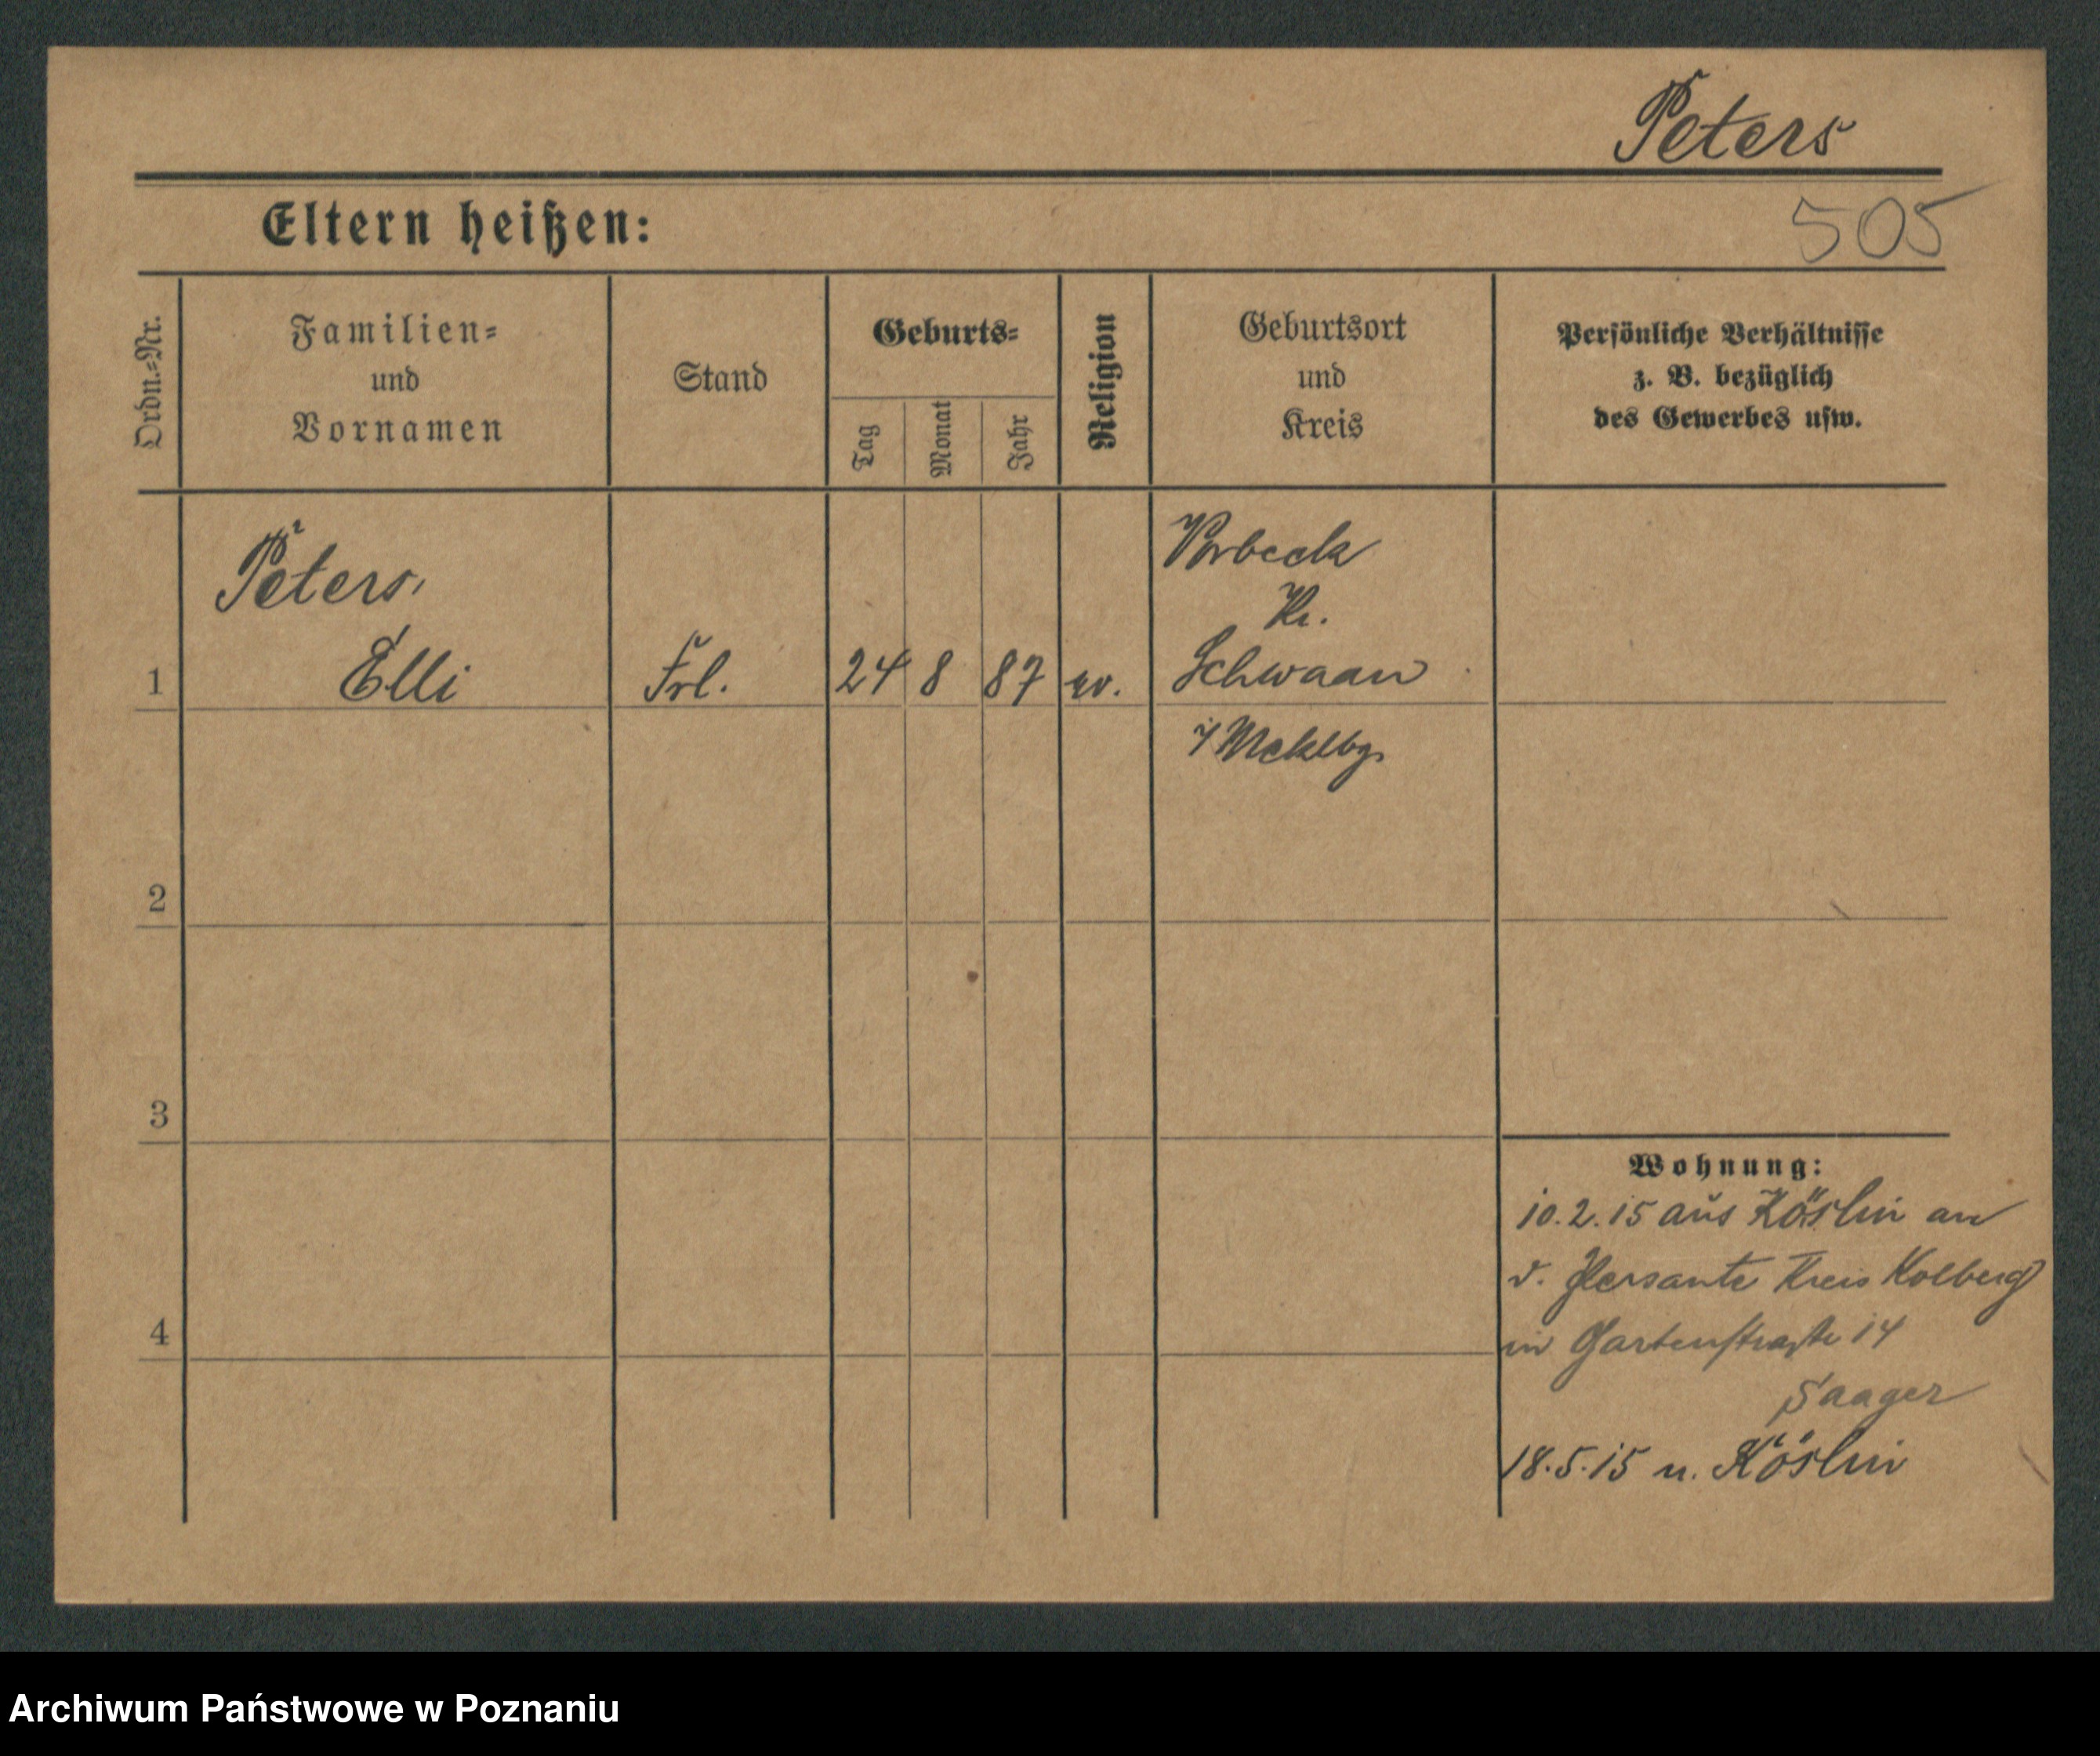 Peters
Eltern heißen:
505
Ordn.-Nr.
Familien-
und
Vornamen
Stand
Geburts-
Tag
Monat
Jahr
Religion
Geburtsort
und
Kreis
Persönliche Verhältnisse
z. B. bezüglich
des Gewerbes usw.
1
Peters,
Elli
Frl.
24 8 87
ev.
Vorbeck
Kr.
Schwaan
i/Meklbg.
2
3
4
Wohnung:
10.2.15 aus Köslin an
d. Persante Kreis Kolberg
in Gartenstraße 14
Saager
18.5.15 n. Köslin
Archiwum Państwowe w Poznaniu